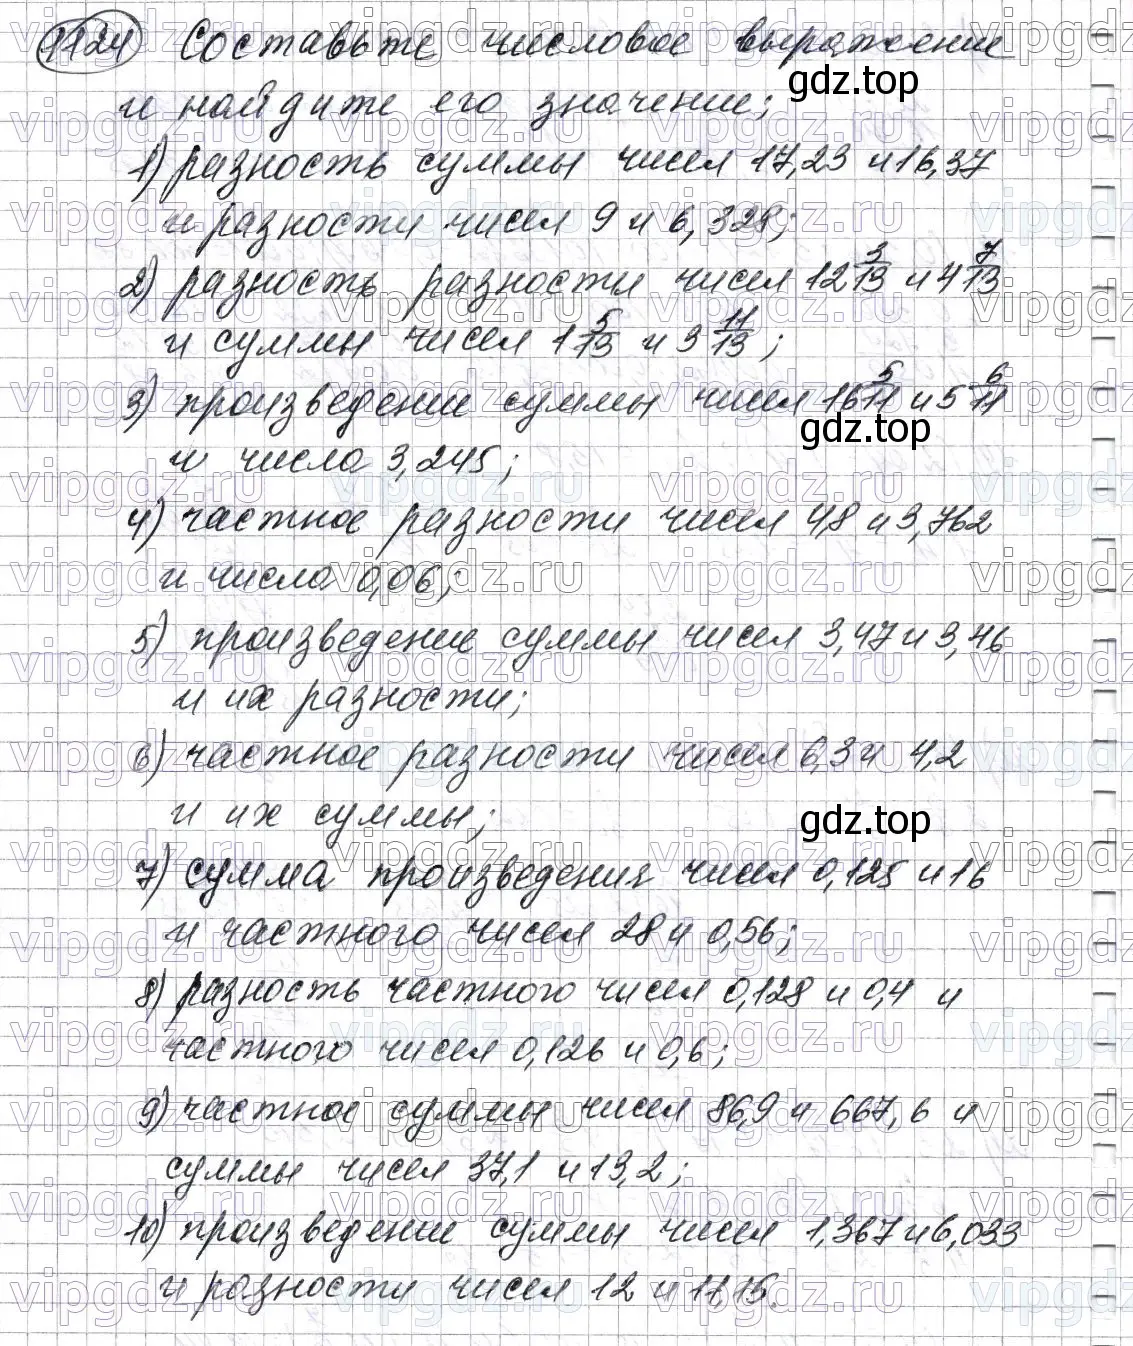 1124 Составьте числовое выражение
gdz.top
и найдите его значение;
1) разность суммы чисел 17,23 и 16,37
и разности чисел 9 и 6,328;
2) разность разности чисел 12 3/13 и 4 7/13
и суммы чисел 1 5/13 и 3 11/13;
3) произведение суммы чисел 16 5/11 и 5 6/11
gdz.top
и числа 3,245;
4) частное разности чисел 48 и 3,762
и числа 0,06;
5) произведение суммы чисел 3,47 и 3,46
и их разности;
6) частное разности чисел 6,3 и 4,2
и их суммы;
gdz.top
7) сумма произведения чисел 0,125 и 16
и частного чисел 28 и 0,56;
8) разность частного чисел 0,128 и 0,4 и
частного чисел 0,126 и 0,6;
9) частное суммы чисел 86,9 и 667,6 и
суммы чисел 37,1 и 13,2;
10) произведение суммы чисел 1,367 и 6,033
и разности чисел 12 и 11,15.